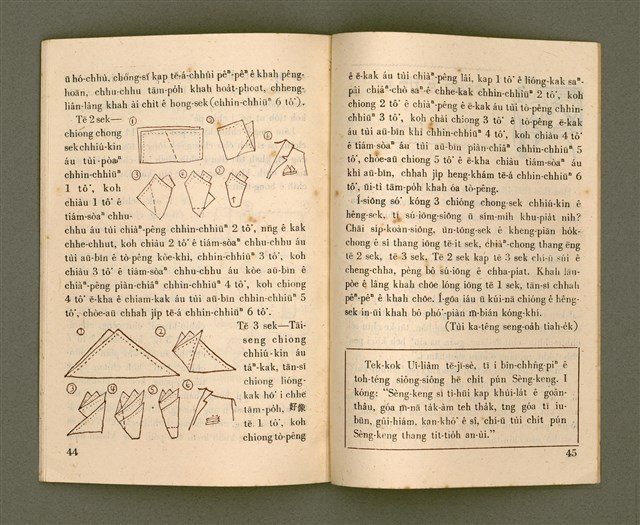 ū hó-chhù, chóng-sī kap tē-á-chhùi pêⁿ-pêⁿ ê khah pêng-
hoān, chhu-chhu tām-po̍h khah hoa̍t-phoat, chheng-
liân-lâng khah ài chit ê hong-sek (chhin-chhiūⁿ 6 tô͘).
Tē 2 sek—
chiong chong
sek chhiú-kin
áu tùi-pòaⁿ
chhin-chhiūⁿ
1 tô͘, koh
chiàu 1 tô͘ ê
tiám-sòaⁿ chhu-
chhu áu tùi chiàⁿ-pêng chhin-chhiūⁿ 2 tô͘, nn̄g ê kak
chhe-chhut, koh chiàu 2 tô͘ ê tiám-sòaⁿ chhu-chhu áu
tùi aū-bīn ê tò-pêng kōe-khì, chhin-chhiūⁿ 3 tô͘, koh
chiàu 3 tô͘ ê tiám-sòaⁿ chhu-chhu áu kòe aū-bīn ê
chiàⁿ-pêng piàn-chiâⁿ chhin-chhiūⁿ 4 tô͘, koh chiong
4 tô͘ ē-kha ê chiam-kak áu tùi aū-bīn chhin-chhiūⁿ 5
tô͘, chòe-aū chhah ji̍p tē-á chhin-chhiūⁿ 6 tô͘.
Tē 3 sek—Tāi-
seng chiong
chhiú-kin áu
táⁿ-kak, tān-sī
chiong lióng-
kak hō͘ i chhe
tām-po̍h, 好像
tē 1 tô͘, koh
chiong tò-pêng
44
ê ē-kak áu tùi chiàⁿ-pêng lâi, kap 1 tô͘ ê lióng-kak saⁿ-
pâi chiâⁿ-chò saⁿ-ê chhe-kak chhin-chhiūⁿ 2 tô͘, koh
chiong 2 tô͘ ê chiàⁿ-pêng ê ē-kak áu tùi tò-pêng chhin-
chhiūⁿ 3 tô͘, koh chài chiong 3 tô͘ ê tò-pêng ē-kak
áu tùi aū-bīn khì chhin-chhiūⁿ 4 tô͘, koh chiàu 4 tô͘
ê tiám-sòaⁿ áu tùi aū-bīn piàn-chiâⁿ chhin-chhiūⁿ 5
tô͘, chòe-aū chiong 5 tô͘ ê ē-kha chiàu tiám-sòaⁿ áu
khì aū-bīn, chhah ji̍p heng-khám tē-á chhin-chhiūⁿ 6
tô͘, ūi-tī tām-po̍h khah óa tò-pêng.
Í-siōng só͘ kóng 3 chióng chong-sek chhiú-kin ê
hêng-sek, tī sú-iōng-siōng ū sím-mi̍h khu-pia̍t nih?
Chāi si̍p-koàn-siōng, ūn-tōng-sek ê kheng-piān ho̍k-
chong ê sî thang iōng tē-it sek, chiàⁿ-chong thang ēng
tē 2 sek, tē 3 sek. Tē 2 sek kap tē 3 sek chí-ū súi ê
cheng-chha, pēng bô sú-iōng ê chha-pia̍t. Khah lāu-
pòe ê lâng khah chōe lóng iōng tē 1 sek, tān-sī chhah
pêⁿ-pêⁿ ê khah chōe. Í-gōa iáu ū kúi-nā chióng ê hêng-
sek in-ūi khah bô phó͘-piàn m̄-biān kóng-khí.
(Tùi ka-têng seng-oa̍h tiah-ék)
Tek-kok Uî-liâm tē-jī-sè, tī i bîn-chhn̂g-piⁿ ê
toh-téng siông-siông hē chi̍t pún Sèng-keng. I
kóng: "Sèng-keng sī tì-hūi kap khùi-la̍t ê goân-
thâu, góa m̄-nā ta̍k-àm teh tha̍k, tng góa tī iu-
būn, gûi-hiám, kan-khó͘ ê sî, chí-ū tùi chit pún
Sèng-keng thang tit-tio̍h an-ùi."
45